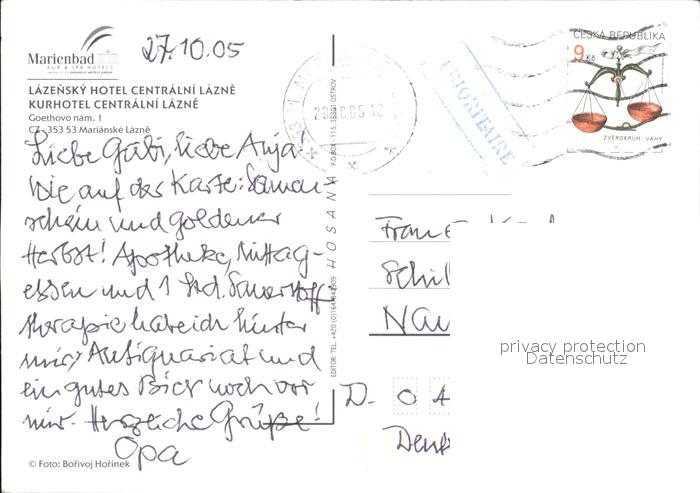 Marienbad
KUR & SPA HOTELS
27.10.05
LÁZEŇSKÝ HOTEL CENTRÁLNÍ LÁZNĚ
KURHOTEL CENTRÁLNÍ LÁZNĚ
Goethovo nám. 1
CZ - 353 53 Mariánské Lázně
Liebe Gabi, liebe Anja!
Wie auf der Karte: Sonnen-
schein und goldener
Herbst! Apotheke, Mittag-
essen und 1 Std. Sauerstoff
therapie habe ich hinter
mir, Antiquariat und
ein gutes Bier noch vor
mir. Herzliche Grüße!
Opa
© Foto: Bořivoj Hořínek
HOSANA
P.O.BOX 115, 36301 OSTROV
PRIORITAIRE
ČESKÁ REPUBLIKA
9 Kč
ZVĚROKRUH - VÁHY
Schil
Nau
D. 0 4
privacy protection
Datenschutz